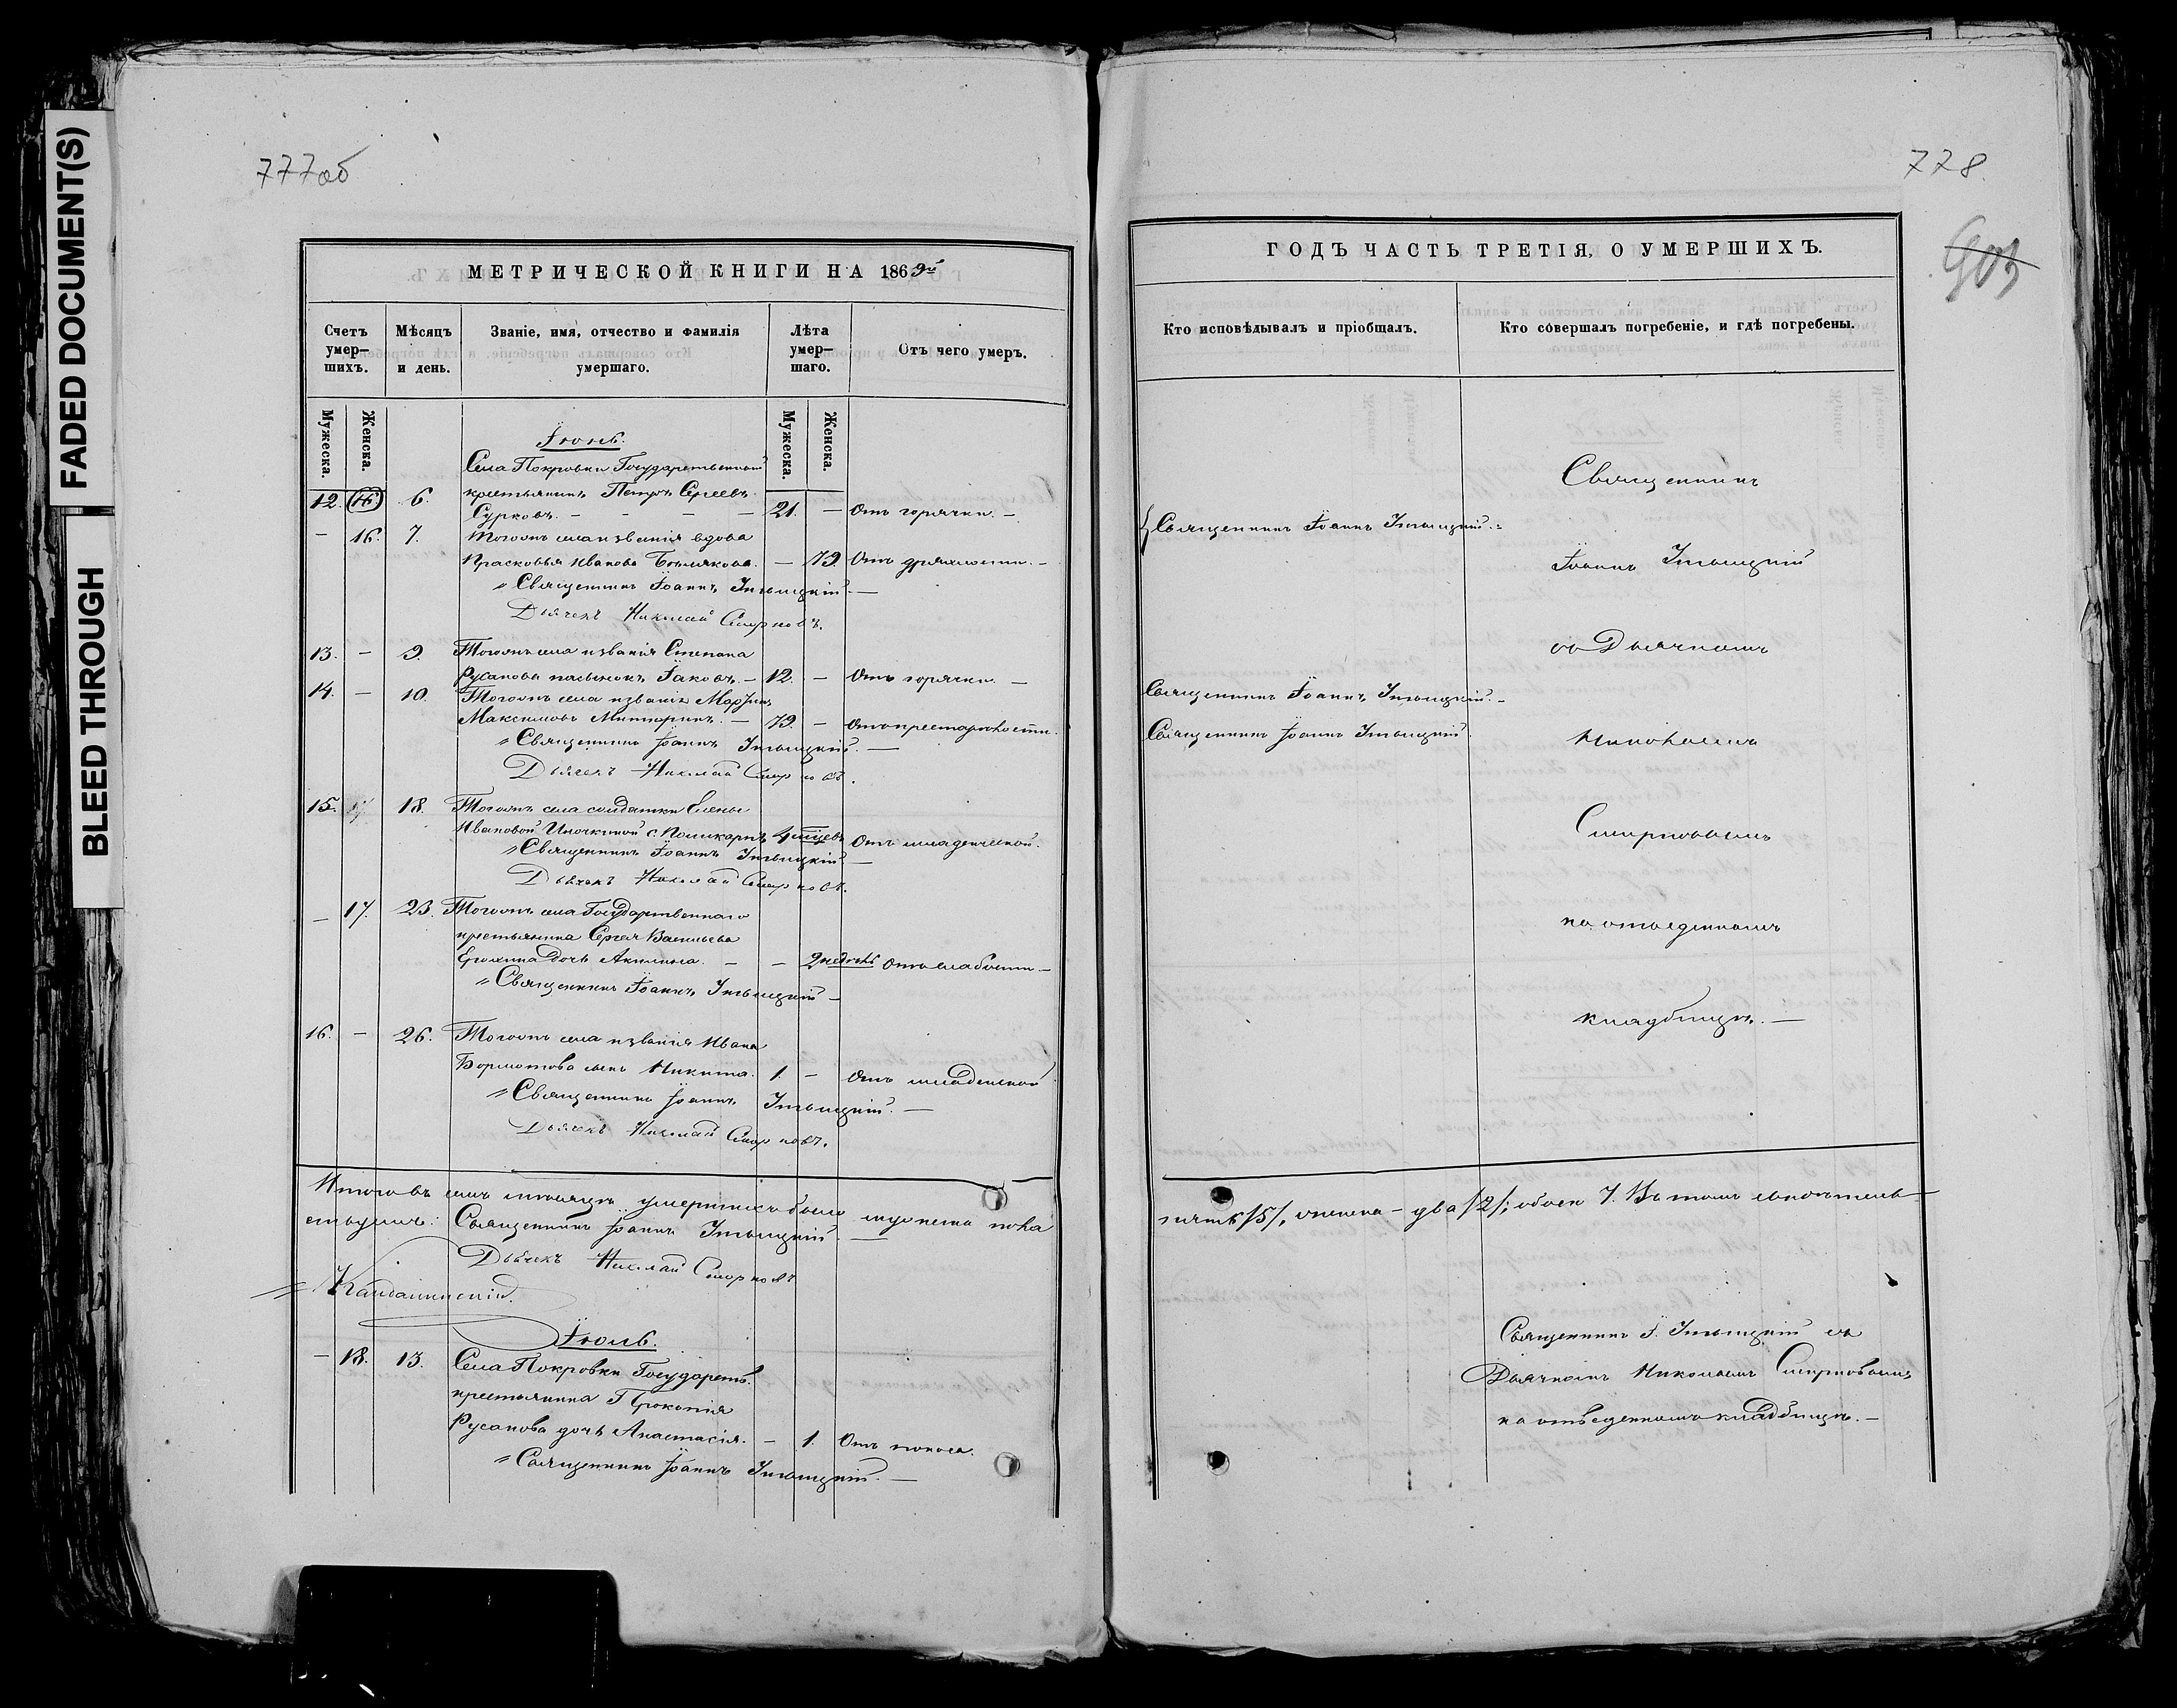 FADED DOCUMENT(S)
BLEED THROUGH
777об
МЕТРИЧЕСКОЙ КНИГИ НА 1869й
Счетъ умер-шихъ.
Мѣсяцъ и день.
Званіе, имя, отчество и фамилія умершаго.
Лѣта умер-шаго.
Отъ чего умеръ.
Мужеска.
Женска.
Мужеска.
Женска.
Іюнь.
Села Покровки Государственный
12. 6. крестьянинъ Петръ Сергеевъ
Сурковъ. — — — — 21. — Отъ горячки. —
— 16. 7. Тогожъ села и званія вдова
Прасковья Иванова — 79. Отъ дряхлости. —
"Священникъ Іоаннъ
Дьячекъ Николай Смирновъ.
13. — 9. Тогожъ села и званія Степана
Русанова пасынокъ Іаковъ. — 12. — Отъ горячки. —
14. — 10. Тогожъ села и званія
Максимовъ — 79. — Отъ престарѣлости.
"Священникъ Іоаннъ
Дьячекъ Николай Смирновъ.
15. 18. Тогожъ села солдатки Елены
Ивановой с. Поликарпъ 4 Отъ младенческой.
"Священникъ Іоаннъ
Дьячекъ Николай Смирновъ.
— 17. 23. Тогожъ села Государственнаго
крестьянина Сергея Васильева
Ерохина дочь Акилина. — — 2 недѣль Отъ слабости —
"Священникъ Іоаннъ
16. — 26. Тогожъ села и званія Ивана
Бормотова сынъ Никита. 1. — Отъ младенской
"Священникъ Іоаннъ
Дьячекъ Николай Смирновъ.
Итого въ семъ мѣсяцѣ умершихъ было мужеска пола
Священникъ Іоаннъ
Дьячекъ Николай Смирновъ
Іюль.
— 18. 13. Села Покровки Государств.
крестьянина Прокопія
Русанова дочь Анастасія. — 1. Отъ поноса.
"Священникъ Іоаннъ
778.
ГОДЪ ЧАСТЬ ТРЕТІЯ, О УМЕРШИХЪ.
Кто исповѣдывалъ и пріобщалъ.
Кто совершалъ погребеніе, и гдѣ погребены.
Священникъ Іоаннъ
Священникъ Іоаннъ
Священникъ Іоаннъ
Священникъ
Іоаннъ
съ Дьячкомъ
Николаемъ
Смирновымъ
на отведенномъ
кладбищѣ. —
пять /5/, женска — два /2/; обоего 7.
Священникъ І. съ
Дьячкомъ Николаемъ Смирновымъ
на отведенномъ кладбищѣ. —